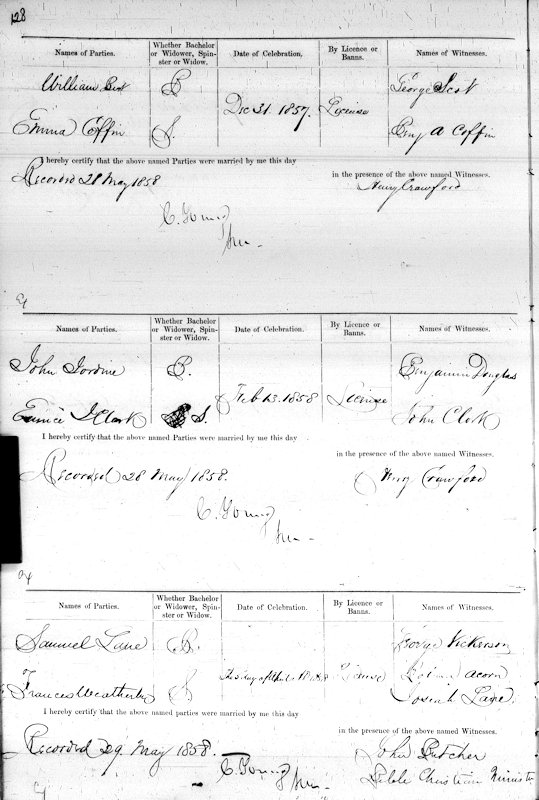 128
Names of Parties. Whether Bachelor or Widower, Spinster or Widow. Date of Celebration. By Licence or Banns. Names of Witnesses.
William B. George Scot
Dec 31. 1857. License
Emma Coffin S. Benj A Coffin
I hereby certify that the above named Parties were married by me this day
in the presence of the above named Witnesses.
Recorded 28 May 1858 Henry Crawford
C. Young
Names of Parties. Whether Bachelor or Widower, Spinster or Widow. Date of Celebration. By Licence or Banns. Names of Witnesses.
John B. Benjamin Douglas
Feb 13. 1858 License
Eunice Clark S. John Clark
I hereby certify that the above named Parties were married by me this day
in the presence of the above named Witnesses.
Recorded 28 May 1858. Henry Crawford
C. Young
Names of Parties. Whether Bachelor or Widower, Spinster or Widow. Date of Celebration. By Licence or Banns. Names of Witnesses.
Samuel Lane B. George Vickerson
License acorn
Frances Weatherby S Josiah Lane
I hereby certify that the above named Parties were married by me this day
in the presence of the above named Witnesses.
Recorded 29 May 1858. John Butcher
C. Young Bible Christian Minister